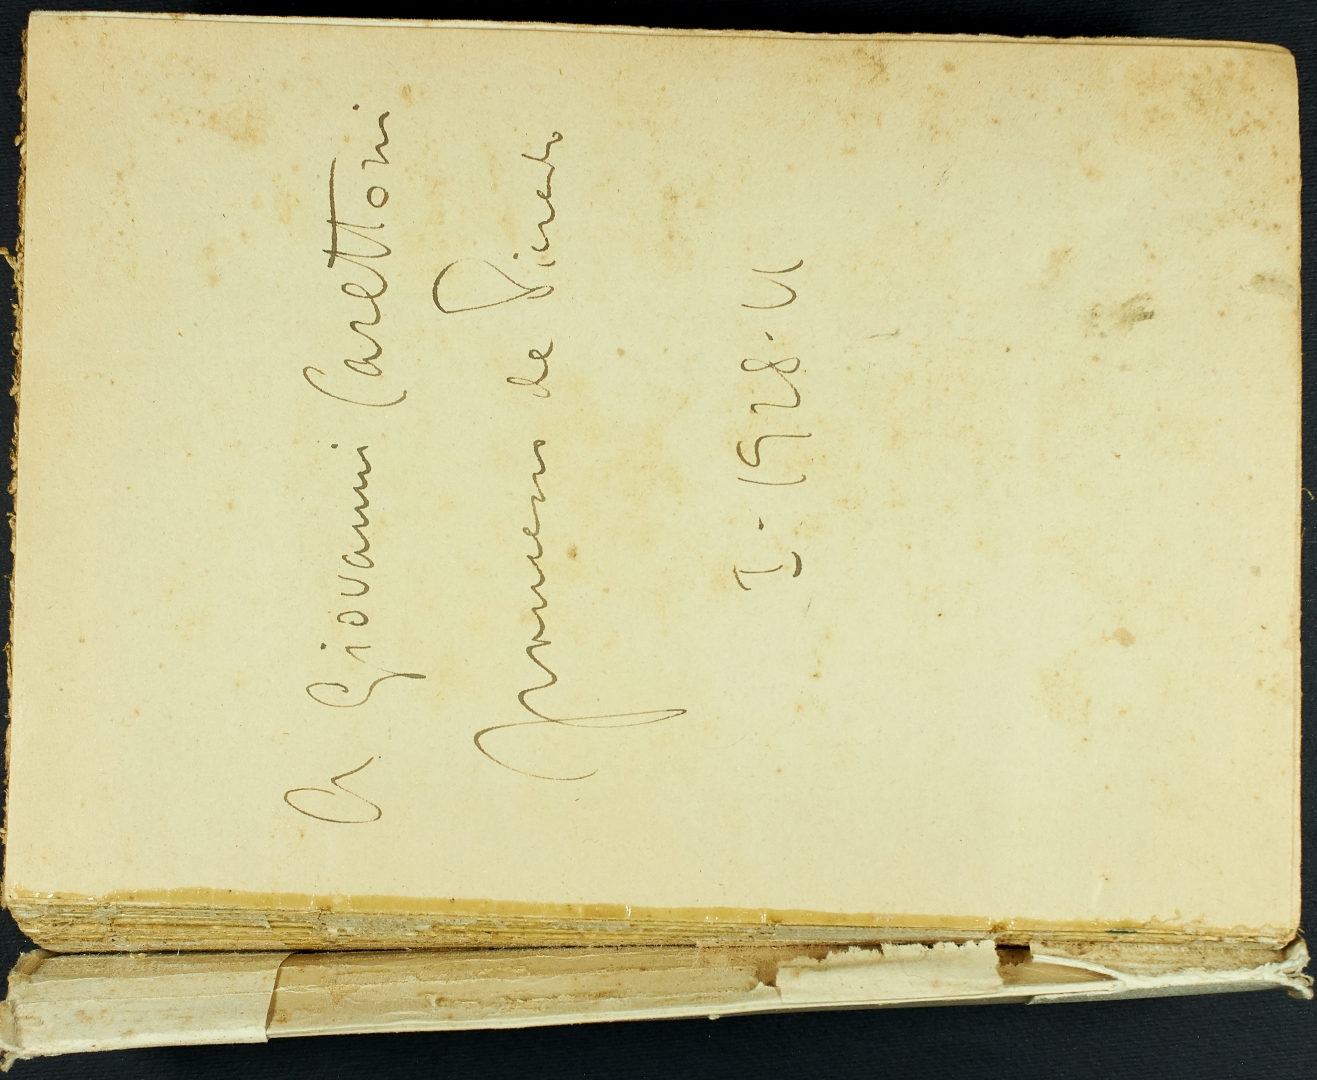 A Giovanni Carettoni
Francesco de Pinedo
I - 1928 - VI